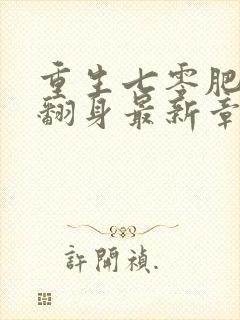 重生七零肥
翻身最新章
許開禎.